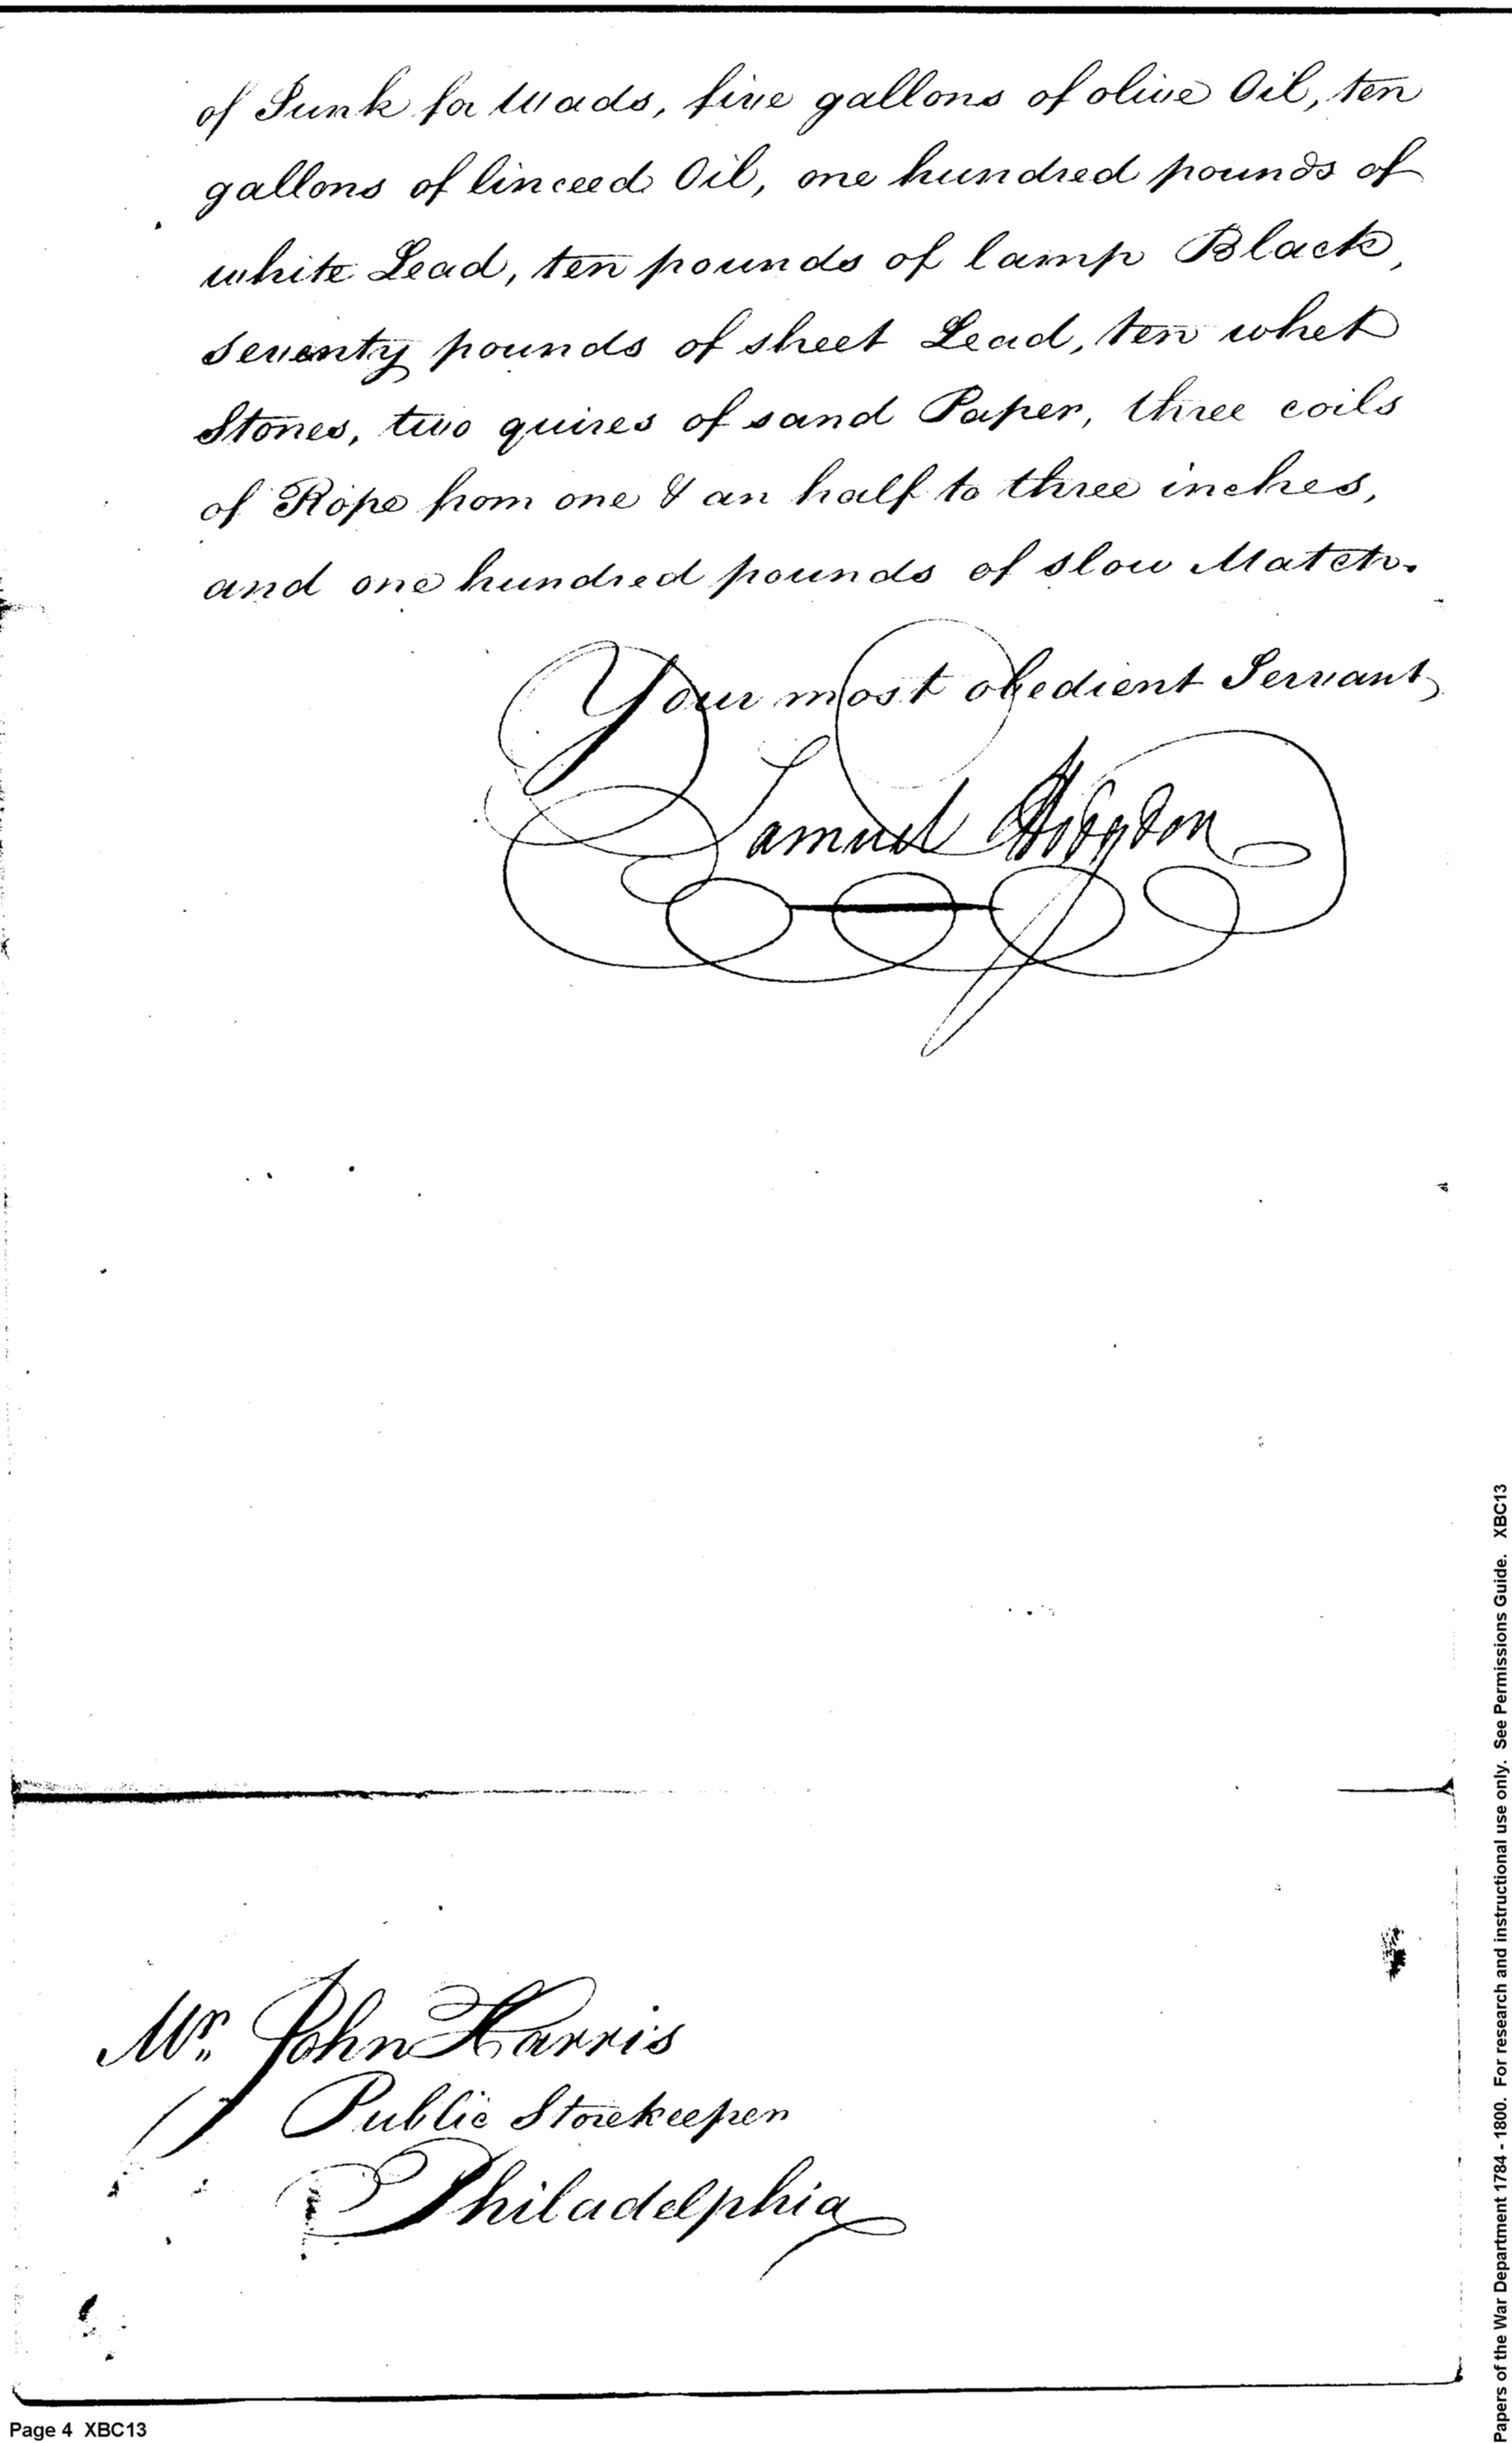 of Junk for Wads, five gallons of olive Oil, ten
gallons of linceed Oil, one hundred pounds of
white Lead, ten pounds of lamp Black,
seventy pounds of sheet Lead, ten whet
Stones, two quires of sand Paper, three coils
of Rope from one & an half to three inches,
and one hundred pounds of slow Match.
Your most obedient Servant
Samuel Hodgdon
Mr. John Harris
Public Storekeeper
Philadelphia
Page 4 XBC13
Papers of the War Department 1784 - 1800. For research and instructional use only. See Permissions Guide. XBC13